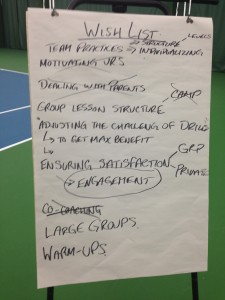 WISH LIST
LEVELS
TEAM PRACTICES → STRUCTURE
→ INDIVIDUALIZING
MOTIVATING UPS
DEALING WITH PARENTS
CAMP
GROUP LESSON STRUCTURE
ADJUSTING THE CHALLENG OF DRILLS
↳ TO GET MAX BENEFIT
↳
GRP
ENSURING SATISFACTION
PRIVATE
→ ENGAGEMENT
CO-COACHING
LARGE GROUPS
WARM-UPS